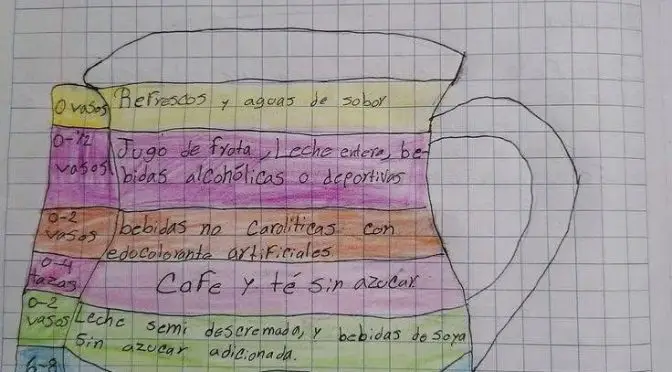 0 vasos Refrescos y aguas de sobor
0-1/2 Jugo de frota, Leche entera, be-
vasos bidas alcohólicas o deportivas
0-2 bebidas no Caroliticas con
vasos edocolorante artificiales
0-4 Cafe y té sin azucar
tazas
0-2 Leche semi descremada, y bebidas de soya
vasos sin azucar adicionada.
6-8